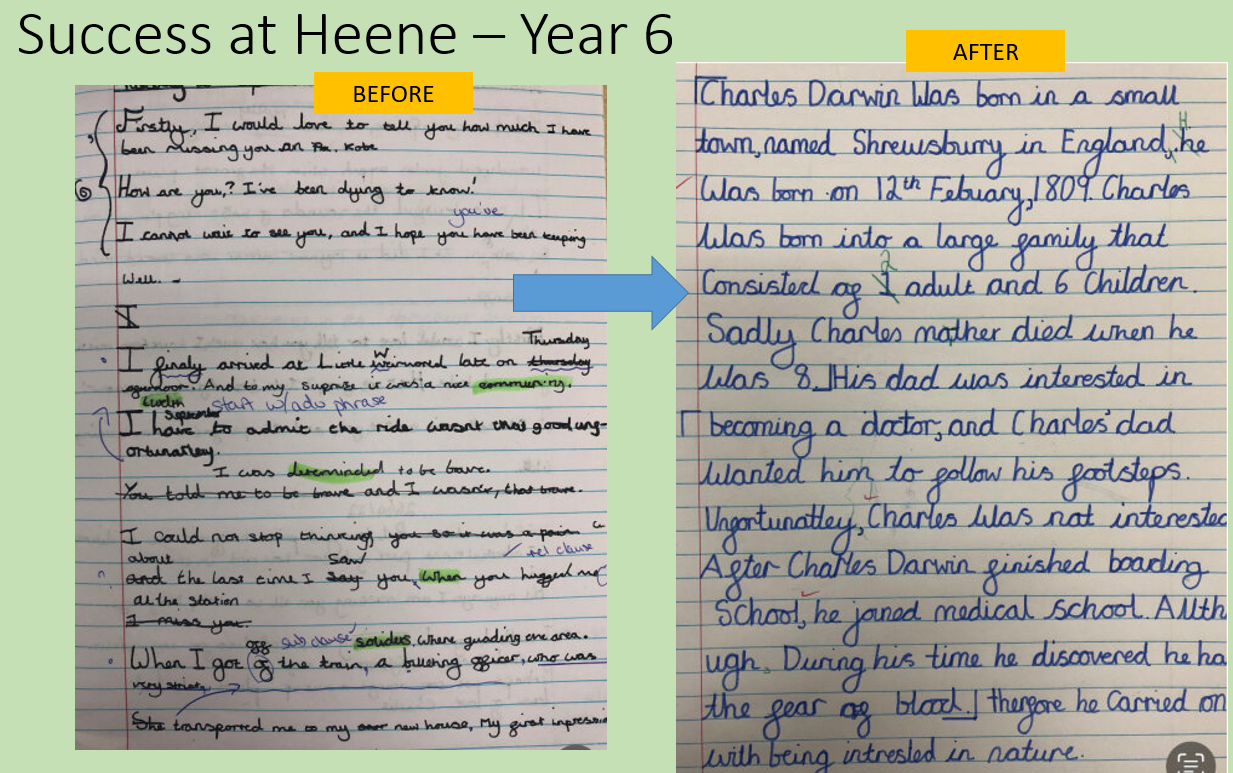 Success at Heene – Year 6
BEFORE
Firstly, I would love to tell you how much I have
been missing you an Kobe
How are you,? I've been dying to know!
you've
I cannot wait to see you, and I hope you have been keeping
Well. -
I
Thursday
I finaly arrived at Little W weirnored late on thursday
And to my suprise it was a nice commun.ing.
start w/adv phrase
I have to admit the ride wasnt that good unf-
ortunatley.
I was determinded to be brave.
You told me to be brave and I wasn't, that brave.
I could not stop thinking you so it was a pain
about saw rel clause
And the last time I say you, when you hugged me
at the station
I miss you.
off sub clause soliders where guading the area.
When I got of the train, a buering officer, who was
very strict,
She transported me to my new house, My first inpressio
AFTER
Charles Darwin Was born in a small
town, named Shrewsburry in England, H he
Was born on 12th Febuary, 1809. Charles
Was born into a large family that
2
Consisted of 1 adult and 6 Children.
Sadly Charles mother died when he
Was 8. His dad was interested in
becoming a doctor, and Charles' dad
Wanted him to follow his footsteps.
Unfortunatley, Charles Was not interested
After Charles Darwin finished boarding
School, he joined medical school. Allth
ugh. During his time he discovered he ha
the fear of blood. therfore he Carried on
with being intrested in nature.